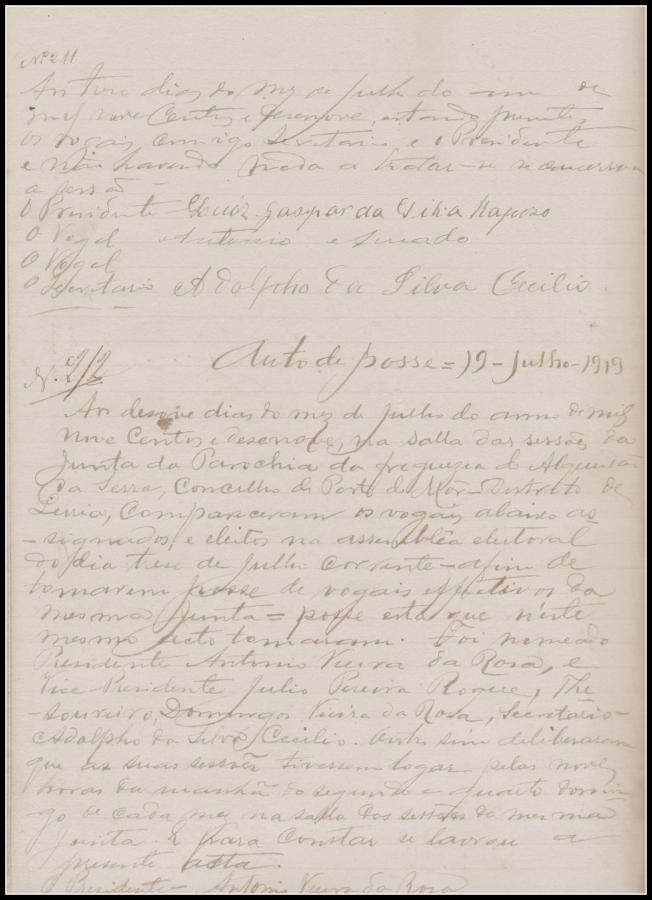 Nº 211
Aos treze dias do mez de Julho do anno de
mil nove Centos e desenove, estando presentes
os vogais, comigo Secretario e o Presidente
e não havendo nada a tratar-se se encerrou
a sessão
O Presidente Gaspar da Silva Raposo
O Vogal Antonio Amado
O Vogal
O Secretario Adolpho da Silva Cecilio.
N. 212
Auto de posse = 19 - Julho - 1919
Aos desenove dias do mez de Julho do anno de mil
nove Centos e desenove, na salla das sessões da
Junta da Parochia da freguezia de Alqueidão
da Serra, Concelho de Porto de Mór - Distrito de
Leiria, Compareceram os vogais abaixo as-
-signados, e eleitos na assemblêa eleitoral
do dia trese de Julho corrente - afim de
tomarem posse de vogais effectivos da
mesma Junta = posse esta que n'este
mesmo acto tomaram. Foi nomeado
Presidente Antonio Vieira da Rosa, e
Vice-Presidente Julio Pereira Roque, The
-soureiro, Domingos Vieira da Rosa, Secretario -
Adolpho da Silva Cecilio. Outro sim deliberaram
que as suas sessões tivessem logar pelas nove
horas da manhã do segundo e quarto domin-
go de cada mez na salla das sessões da mesma
Junta. E para constar se lavrou a
presente acta.
Presidente - Antonio Vieira da Rosa